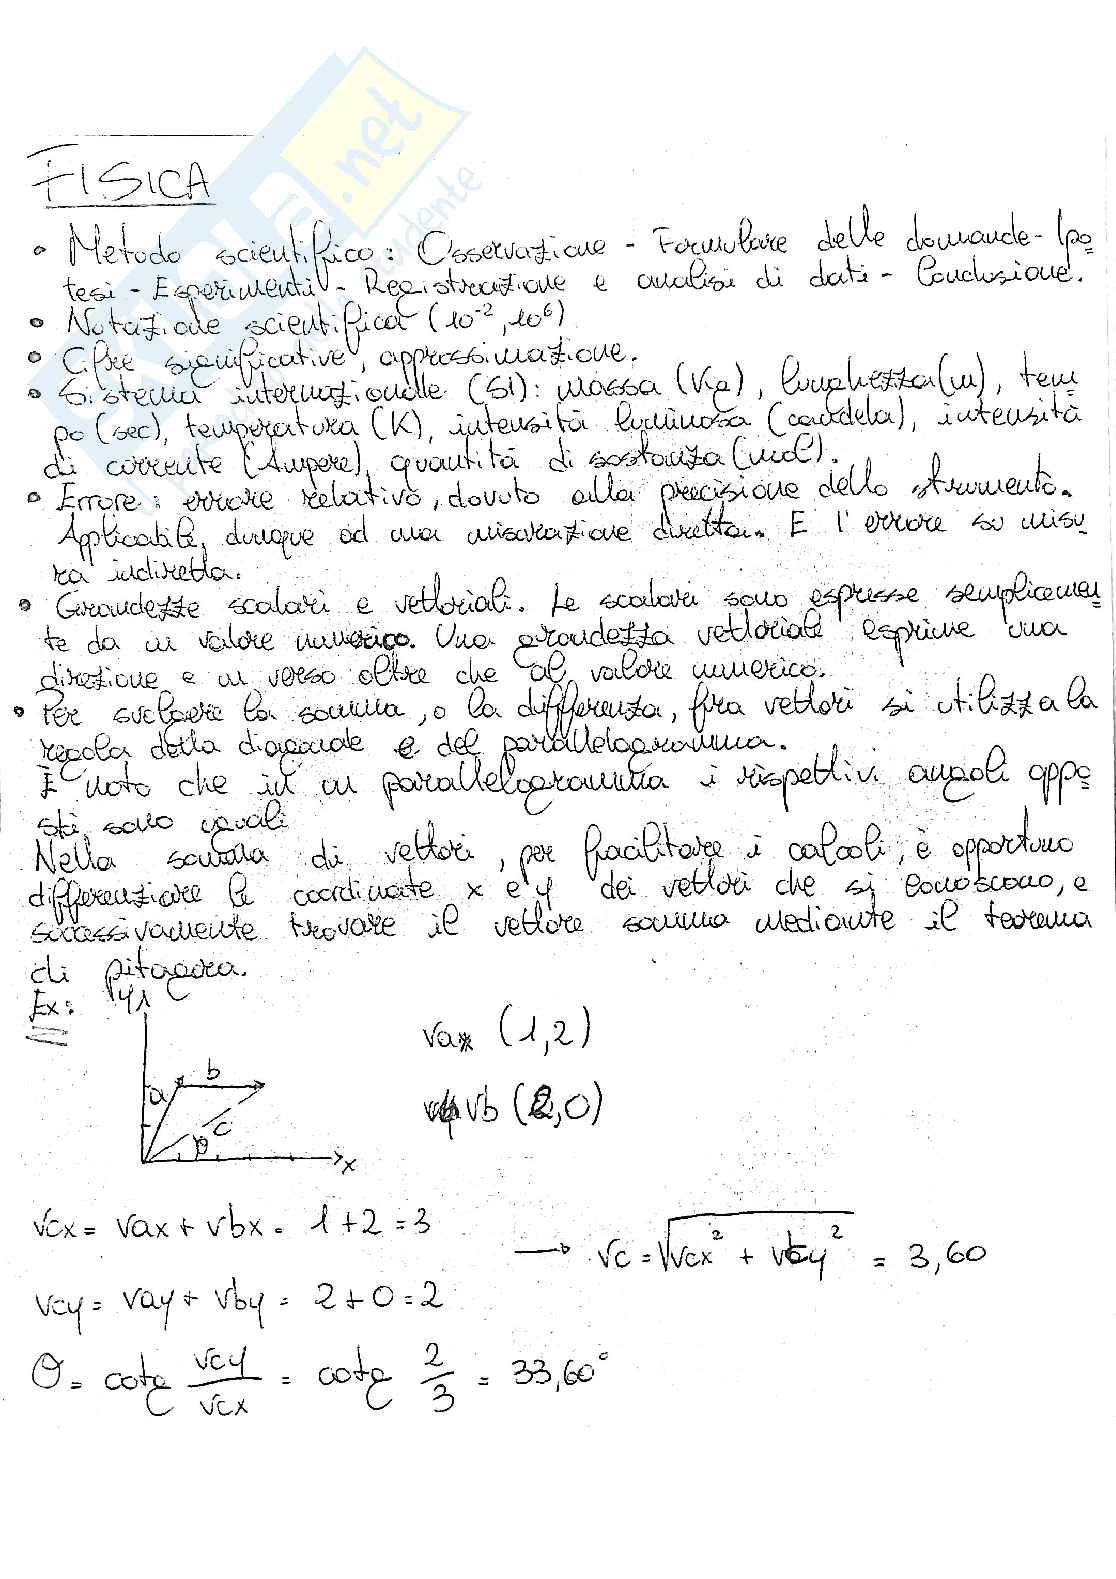 FISICA
• Metodo scientifico: Osservazione - Formulare delle domande - Ipo
tesi - Esperimenti - Registrazione e analisi di dati - Conclusione.
• Notazione scientifica (10⁻², 10⁶)
• Cifre significative, approssimazione.
• Sistema internazionale (SI): massa (Kg), lunghezza (m), tem
po (sec), temperatura (K), intensità luminosa (candela), intensità
di corrente (Ampere), quantità di sostanza (mol).
• Errore: errore relativo, dovuto alla precisione dello strumento.
Applicabile, dunque ad una misurazione diretta. E l'errore su misu
ra indiretta.
• Grandezze scalari e vettoriali. Le scalari sono espresse semplicemen
te da un valore numerico. Una grandezza vettoriale esprime una
direzione e un verso oltre che al valore numerico.
• Per svolgere la somma, o la differenza, fra vettori si utilizza la
regola della diagonale e del parallelogramma.
È noto che in un parallelogramma i rispettivi angoli oppo
sti sono uguali
Nella somma di vettori, per facilitare i calcoli, è opportuno
differenziare le coordinate x e y dei vettori che si conoscono, e
successivamente trovare il vettore somma mediante il teorema
di pitagora.
Ex:
y
a
b
c
θ
x
va (1,2)
vb (2,0)
vcx = vax + vbx = 1+2 = 3
→ vc = √vcx² + vcy² = 3,60
vcy = vay + vby = 2+0 = 2
θ = cotg vcy/vcx = cotg 2/3 = 33,60°
.net